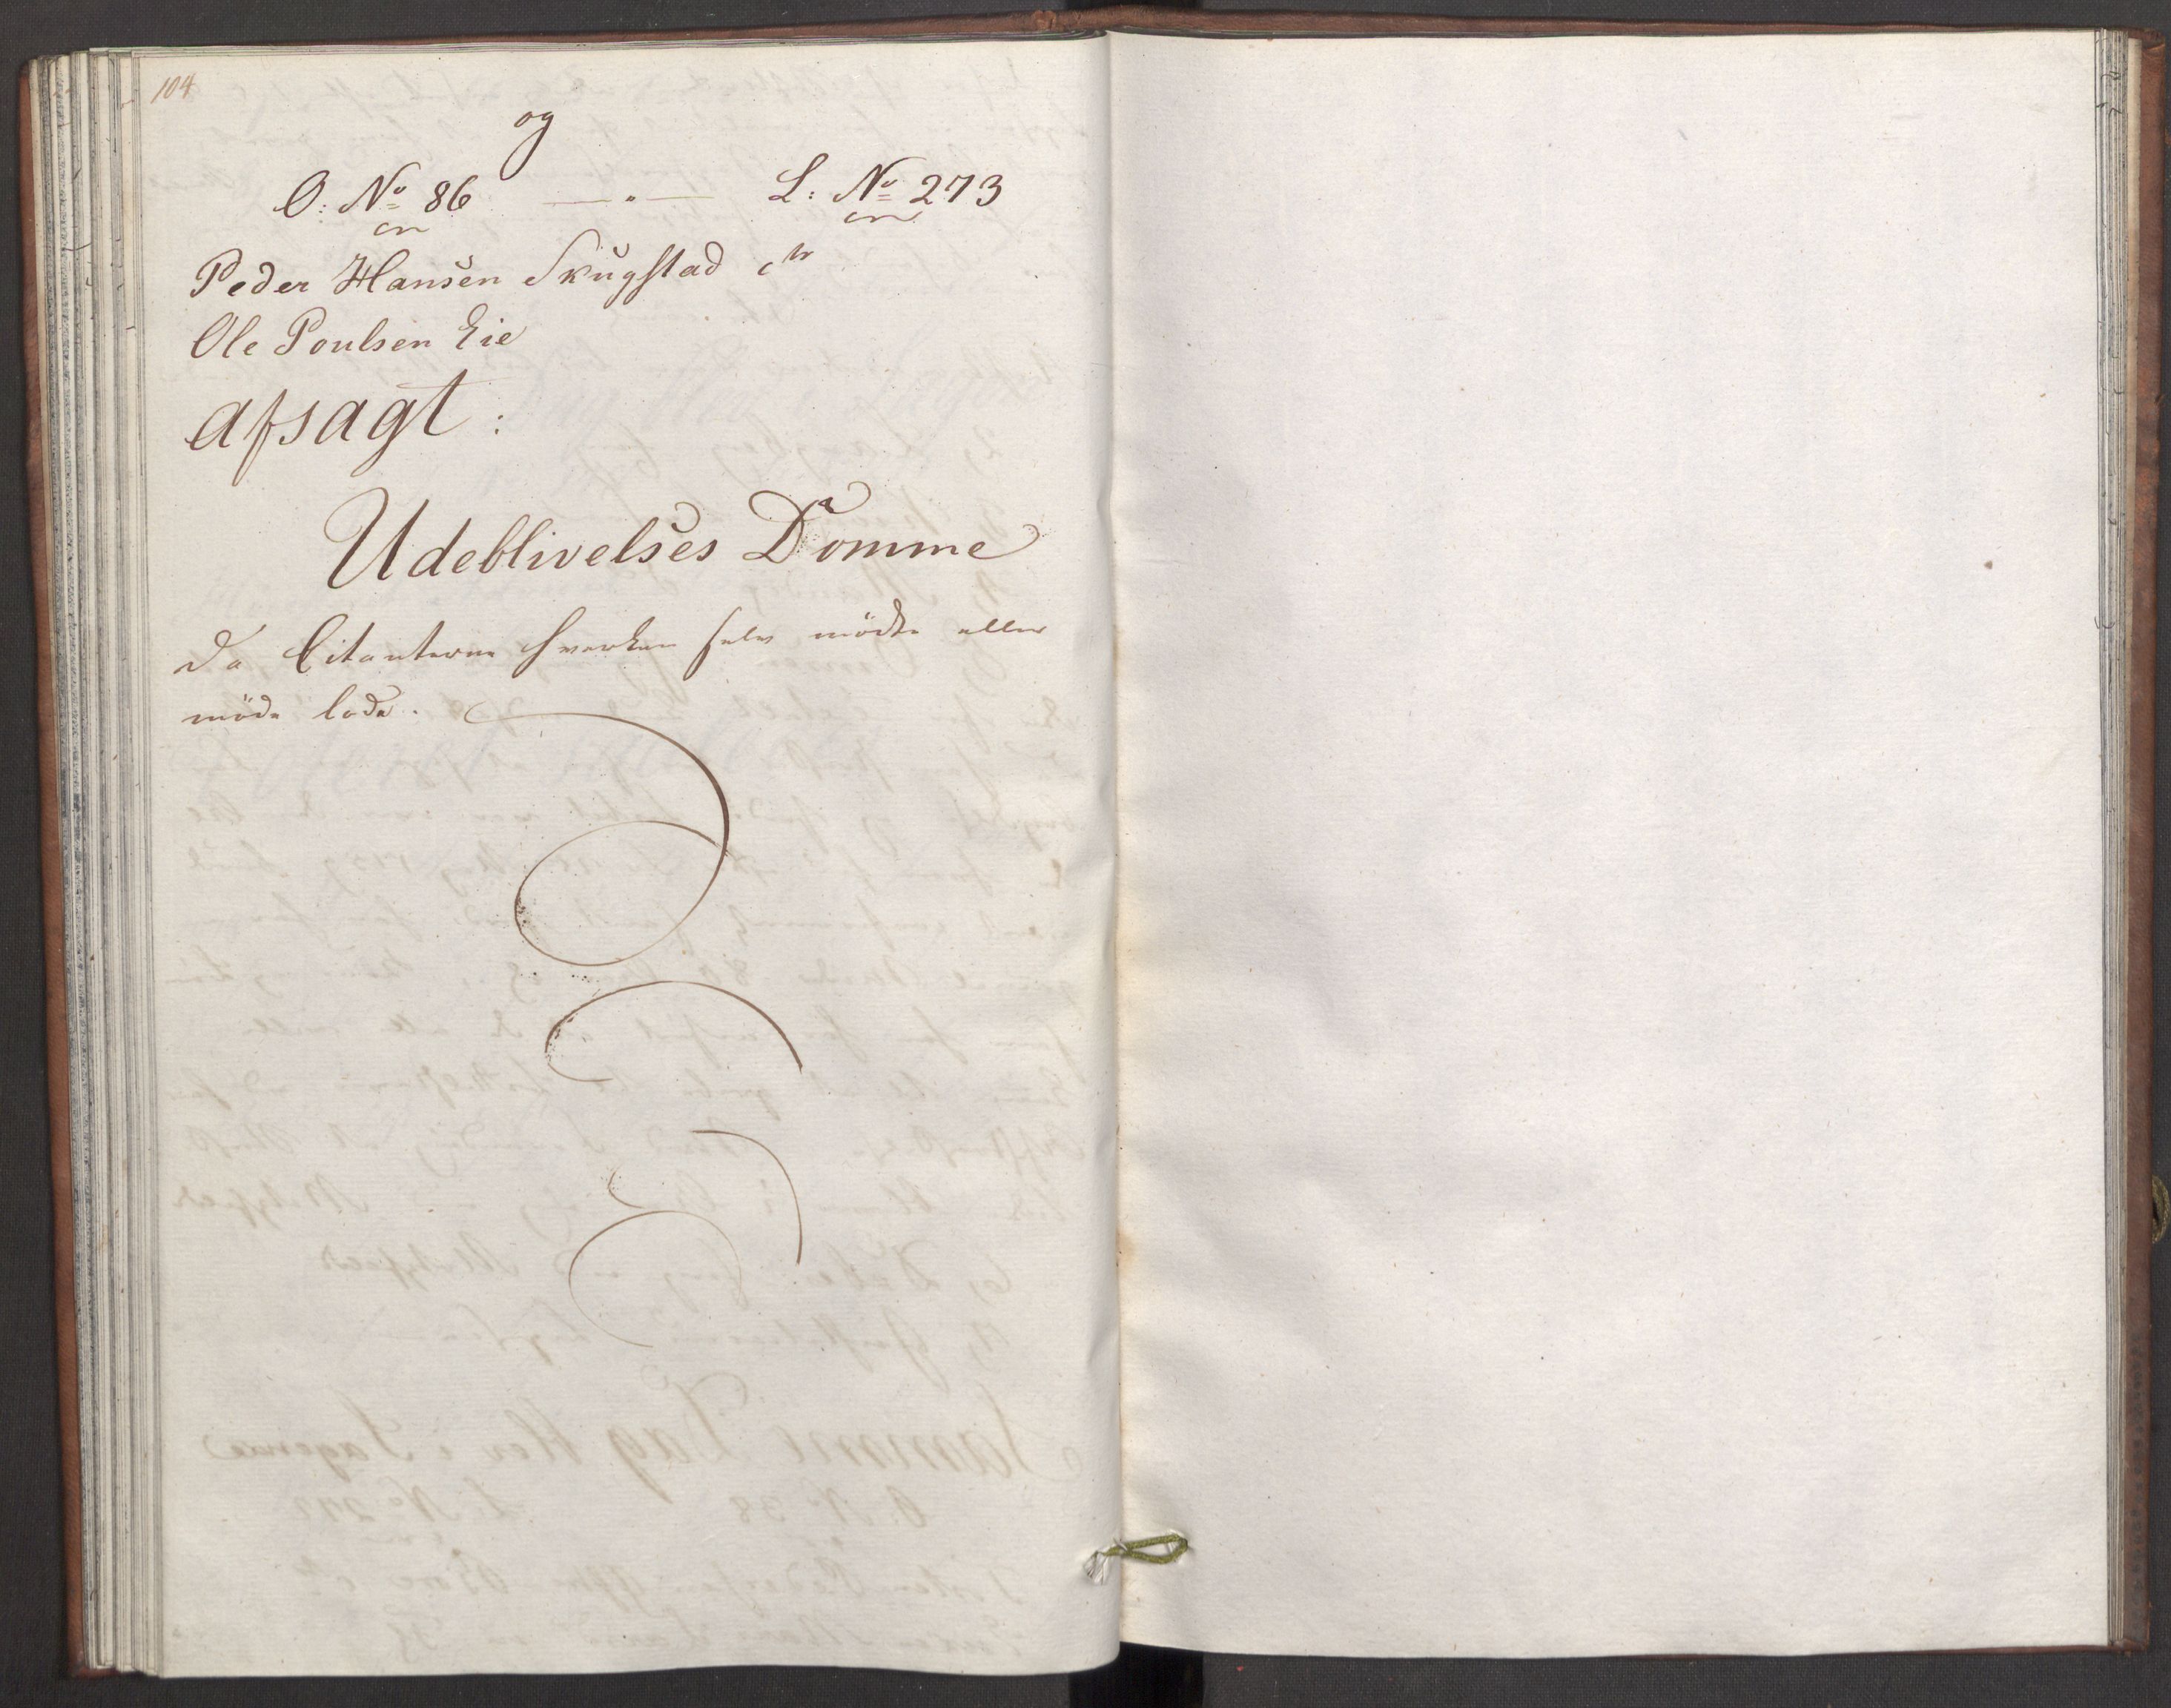 104
og
O: No 86 — " — L: No 273
Peder Hansen Skugstad ctr
Ole Poulsen Eie
afsagt:
Udeblivelses Domme
da Citanterne hverken selv mödte eller
möde lode.